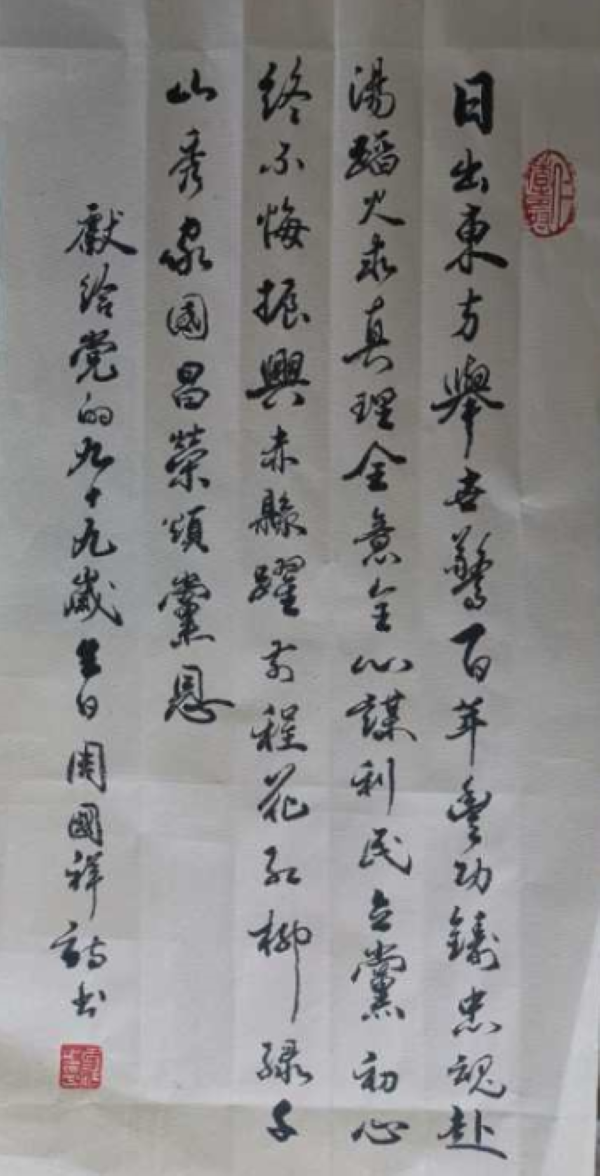 日出東方舉世驚百年豐功鑄忠魂赴
湯蹈火求真理全意全心謀利民立黨初心
終不悔振興赤縣躍前程花紅柳綠千
山秀家國昌榮頌黨恩
獻給党的九十九歲生日周國祥詩书